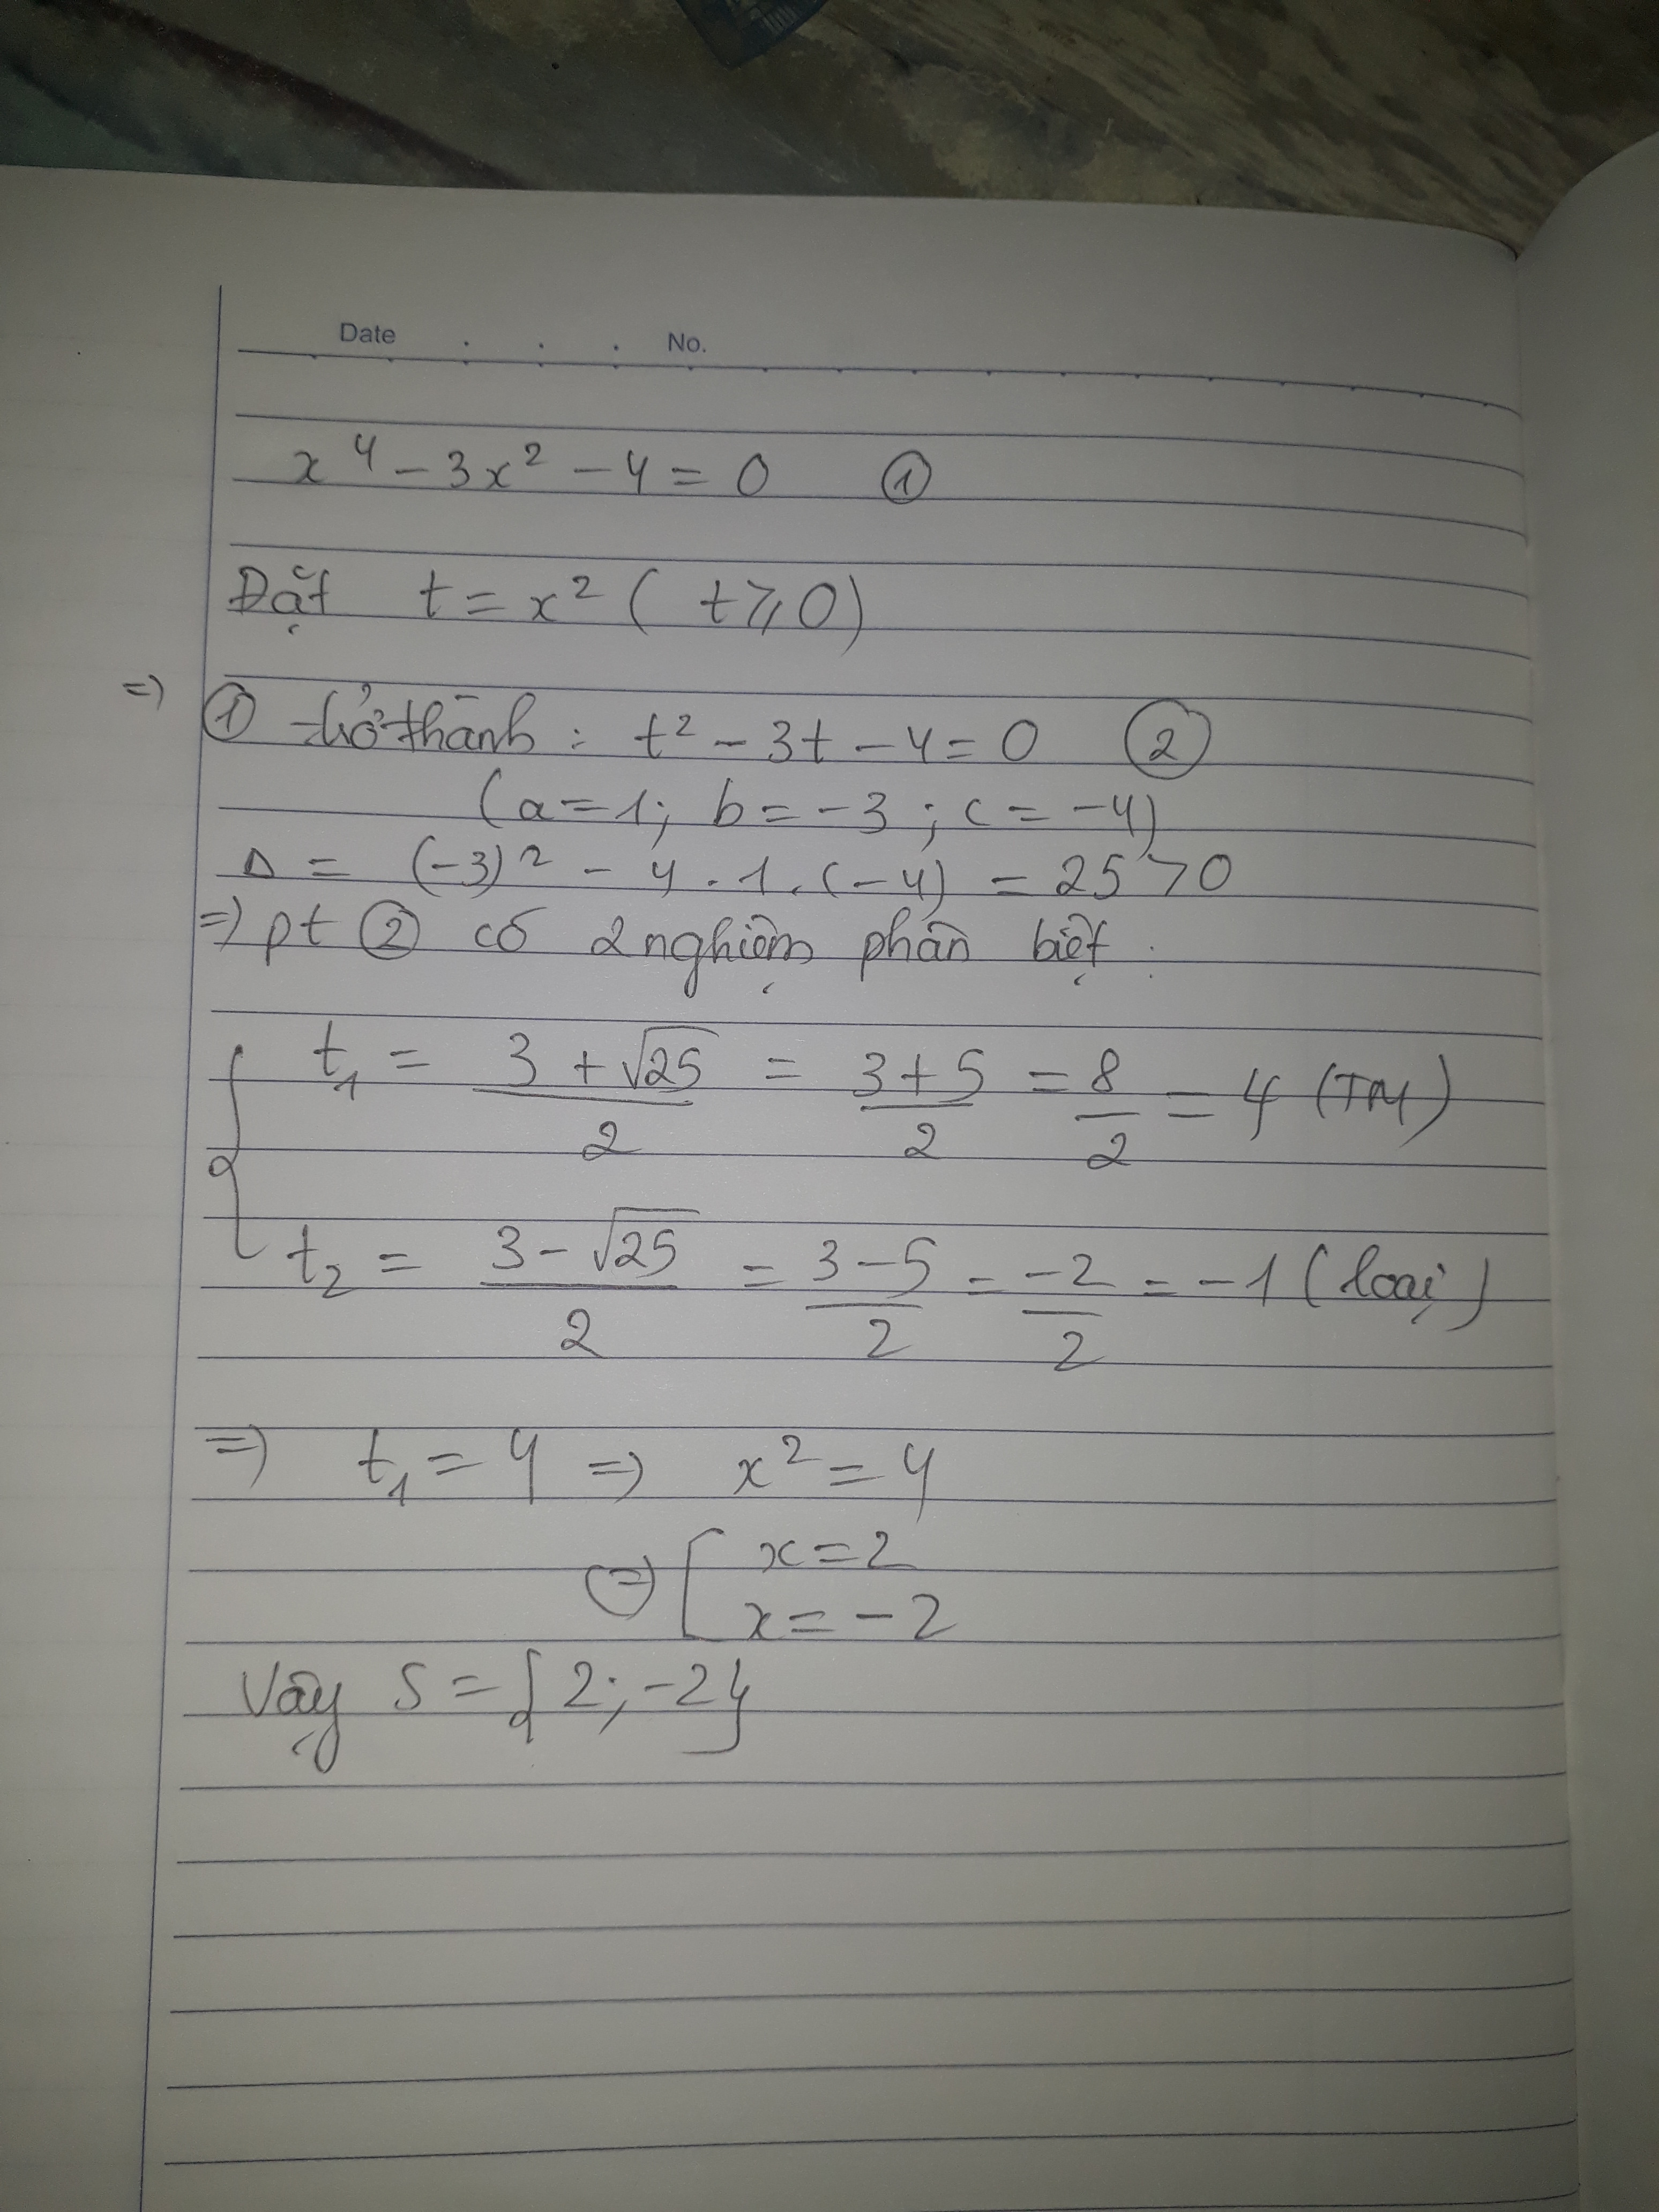 Date . . . No.
x⁴ - 3x² - 4 = 0 ①
Đặt t = x² ( t ⩾ 0)
=> ① trở thành : t² - 3t - 4 = 0 ②
(a = 1; b = -3 ; c = -4)
Δ = (-3)² - 4 . 1 . (-4) = 25 > 0
=> pt ② có 2 nghiệm phân biệt :
{ t₁ = (3 + √25)/2 = (3 + 5)/2 = 8/2 = 4 (TM)
t₂ = (3 - √25)/2 = (3 - 5)/2 = -2/2 = -1 (loại)
=> t₁ = 4 => x² = 4
(=) [ x = 2
x = -2
Vậy S = {2; -2}